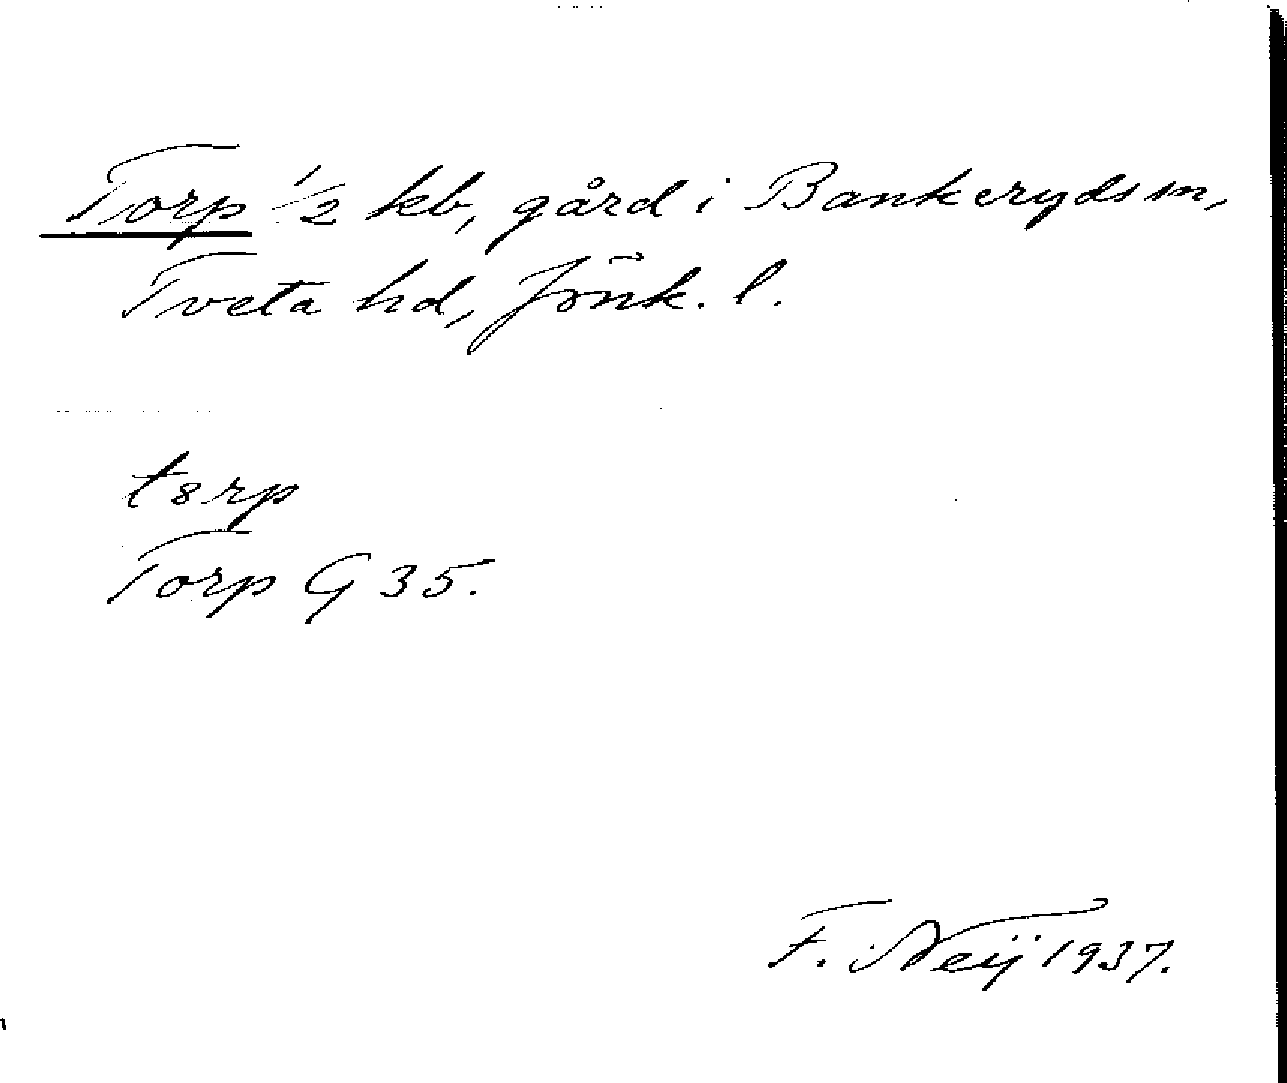 Torp 1/2 kb, gård i Bankeryds sn,
Tveta hd, Jönk. l.
t8rp
Torp G 35.
F. Neij 1937.